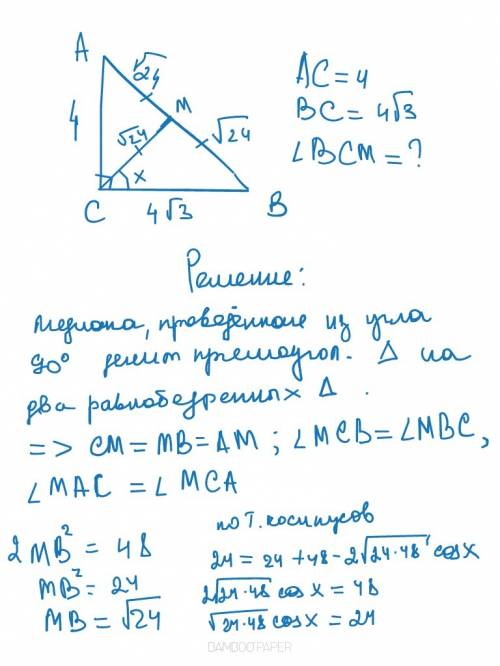 A
√24
M
4
√24
√24
x
C
4√3
B
AC = 4
BC = 4√3
∠BCM = ?
Решение:
Медиана, проведённая из угла
90° делит прямоугол. Δ на
два равнобедренных Δ.
=> CM = MB = AM ; ∠MCB = ∠MBC,
∠MAC = ∠MCA
2MB² = 48
MB² = 24
MB = √24
по Т. косинусов
24 = 24 + 48 - 2√24·48 cosx
2√24·48 cos x = 48
√24·48 cosx = 24
BAMBOOPAPER